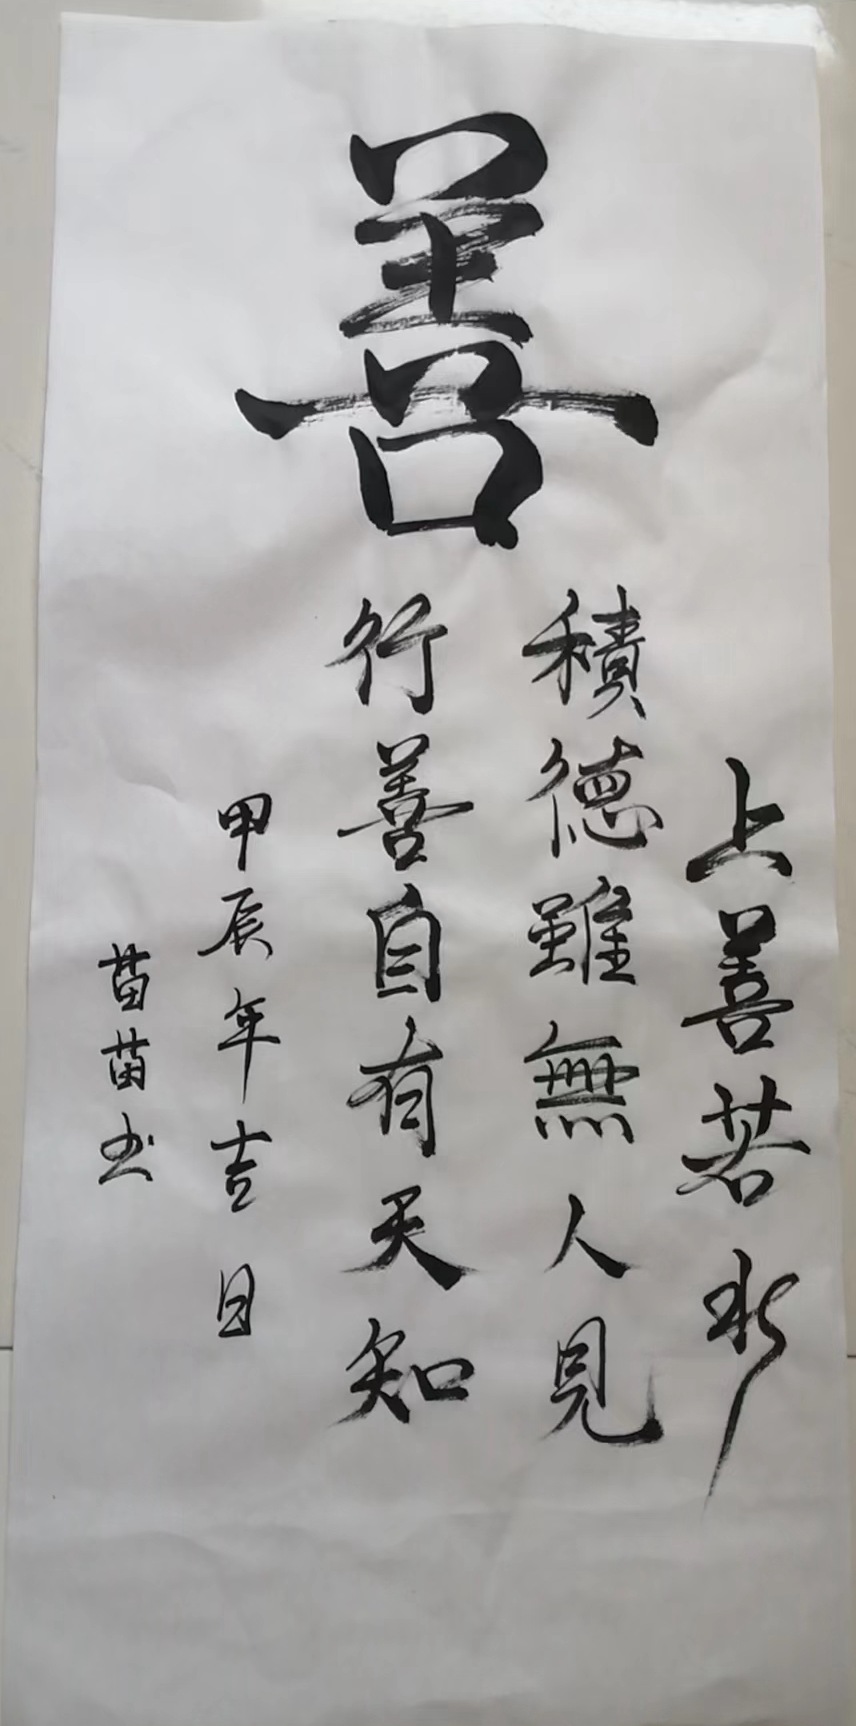 善
上善若水
積德雖無人見
行善自有天知
甲辰年吉日
苗苗书